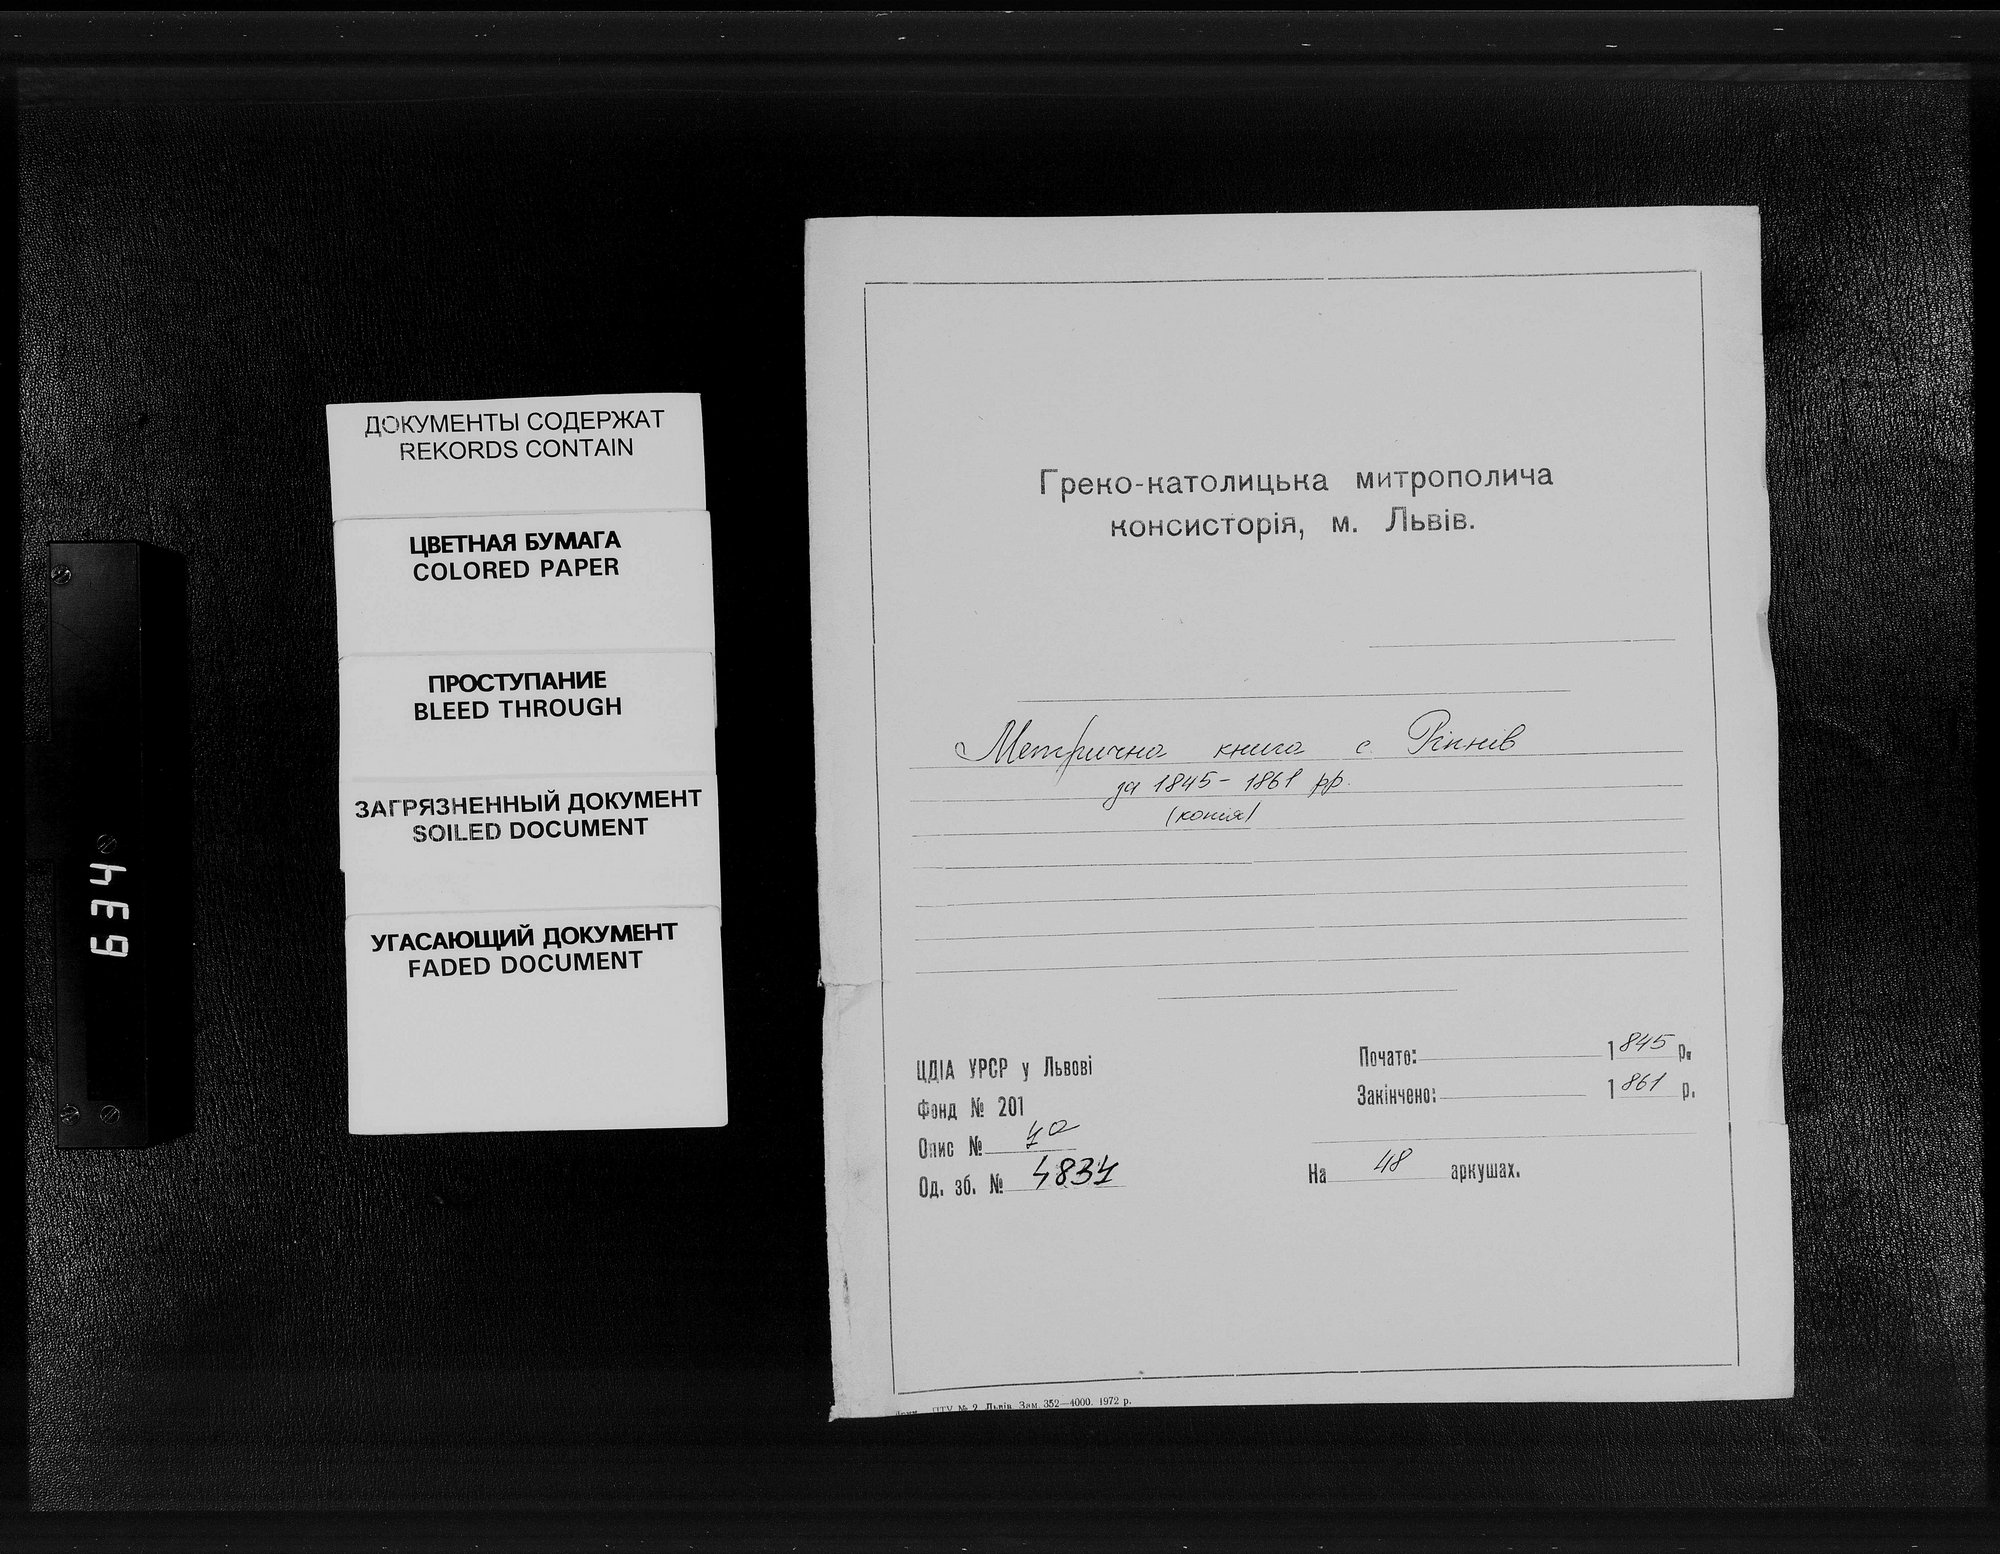 ДОКУМЕНТЫ СОДЕРЖАТ
REKORDS CONTAIN
ЦВЕТНАЯ БУМАГА
COLORED PAPER
ПРОСТУПАНИЕ
BLEED THROUGH
ЗАГРЯЗНЕННЫЙ ДОКУМЕНТ
SOILED DOCUMENT
УГАСАЮЩИЙ ДОКУМЕНТ
FADED DOCUMENT
634
Греко-католицька митрополича
консисторія, м. Львів.
Метрична книга с. Ріпнів
за 1845-1861 рр.
(копія)
ЦДІА УРСР у Львові
Фонд № 201
Опис № 4а
Од. зб. № 4834
Почато: 1845 р.
Закінчено: 1861 р.
На 48 аркушах.
ПТУ № 2 Львів Зам. 352—4000. 1972 р.